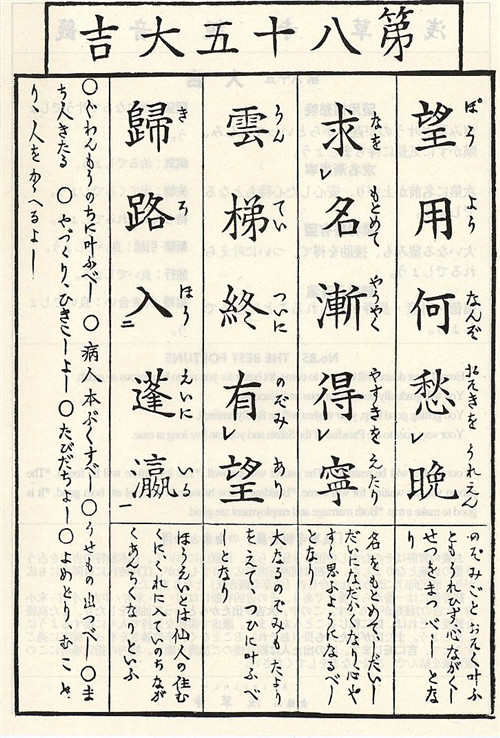 第八十五大吉
ぼう よう なんぞ おそきを うれえん
望用何愁レ晩
のぞみごとおそく叶ふ
ともうれひず心ながくし
せをまつべしとな
り
なを もとめて やうやく やすきをえたり
求レ名漸得レ寧
名をもとめてしだいし
だいになだかくなり心や
すく思ふようになるべし
となり
うん てい ついに のぞみ あり
雲梯終有レ望
大なるのぞみもたより
をえてつひに叶ふべ
しとなり
き ろ ほう えいに いる
歸路入二蓬瀛一
ほうえいとは仙人の住む
くにぐれに入てい のちなが
くあんらくなりといふ
〇ぐわんもうのちに叶ふべし〇病人本ぶくすべし〇うせもの出づべし〇ま
ち人きたる〇やづくり、ひきこしよし〇たびだちよし〇よめとり、むこと
り、人をかゝへるよし